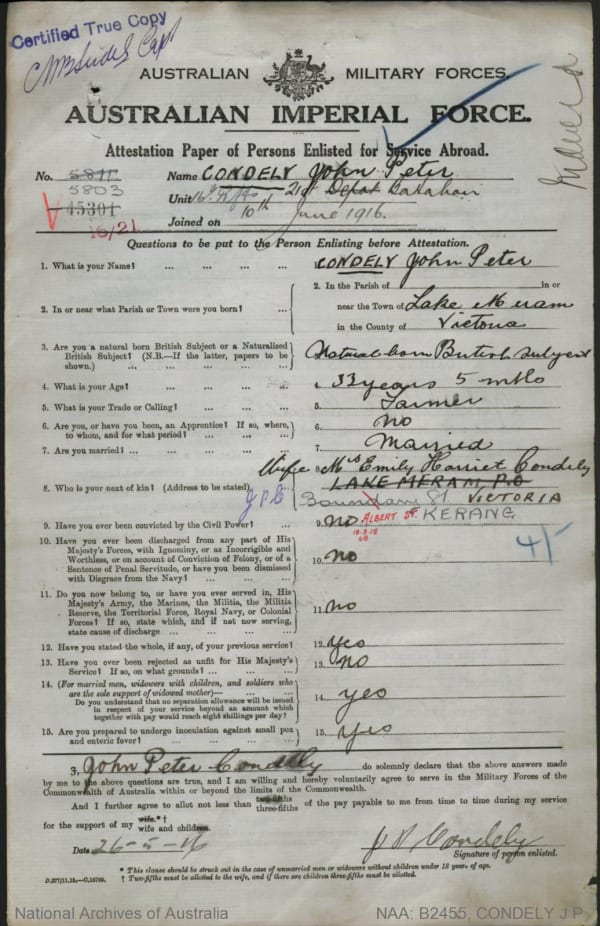 Certified True Copy
Capt
AUSTRALIAN MILITARY FORCES.
AUSTRALIAN IMPERIAL FORCE.
Attestation Paper of Persons Enlisted for Service Abroad.
No. 5803
45301
16/21
Name CONDELY John Peter
Unit 21st Depot Battalion
Joined on 10th June 1916.
Married
Questions to be put to the Person Enlisting before Attestation.
1. What is your Name? ... ... ... ... 1. CONDELY John Peter
2. In or near what Parish or Town were you born? ... 2. In the Parish of in or
near the Town of Lake Meram
in the County of Victoria
3. Are you a natural born British Subject or a Naturalized
British Subject? (N.B.—If the latter, papers to be
shown.) ... ... ... ... Natural born British Subject
4. What is your Age? ... ... ... ... 4. 33 years 5 mths
5. What is your Trade or Calling? ... ... ... 5. Farmer
6. Are you, or have you been, an Apprentice? If so, where,
to whom, and for what period? ... ... ... 6. No
7. Are you married? ... ... ... ... 7. Married
8. Who is your next of kin? (Address to be stated) ... Wife 8. Mrs Emily Harriet Condely
LAKE MERAM, P.O
Boundary St. VICTORIA
ALBERT St. KERANG
9. Have you ever been convicted by the Civil Power? ... 9. no
4/-
10. Have you ever been discharged from any part of His
Majesty's Forces, with Ignominy, or as Incorrigible and
Worthless, or on account of Conviction of Felony, or of a
Sentence of Penal Servitude, or have you been dismissed
with Disgrace from the Navy? ... ... ... 10. no
11. Do you now belong to, or have you ever served in, His
Majesty's Army, the Marines, the Militia, the Militia
Reserve, the Territorial Force, Royal Navy, or Colonial
Forces? If so, state which, and if not now serving,
state cause of discharge ... ... ... 11. no
12. Have you stated the whole, if any, of your previous service? 12. yes
13. Have you ever been rejected as unfit for His Majesty's
Service? If so, on what grounds? ... ... 13. no
14. (For married men, widowers with children, and soldiers who
are the sole support of widowed mother)— ... ...
Do you understand that no separation allowance will be issued
in respect of your service beyond an amount which
together with pay would reach eight shillings per day? 14. yes
15. Are you prepared to undergo inoculation against small pox
and enteric fever? ... ... ... ... 15. yes
I, John Peter Condely do solemnly declare that the above answers made
by me to the above questions are true, and I am willing and hereby voluntarily agree to serve in the Military Forces of the
Commonwealth of Australia within or beyond the limits of the Commonwealth.
And I further agree to allot not less than two-fifths three-fifths of the pay payable to me from time to time during my service
for the support of my wife.*† wife and children.
Date 26-5-16
J P Condely
Signature of person enlisted.
* This clause should be struck out in the case of unmarried men or widowers without children under 18 years of age.
† Two-fifths must be allotted to the wife, and if there are children three-fifths must be allotted.
National Archives of Australia
NAA: B2455, CONDELY J P